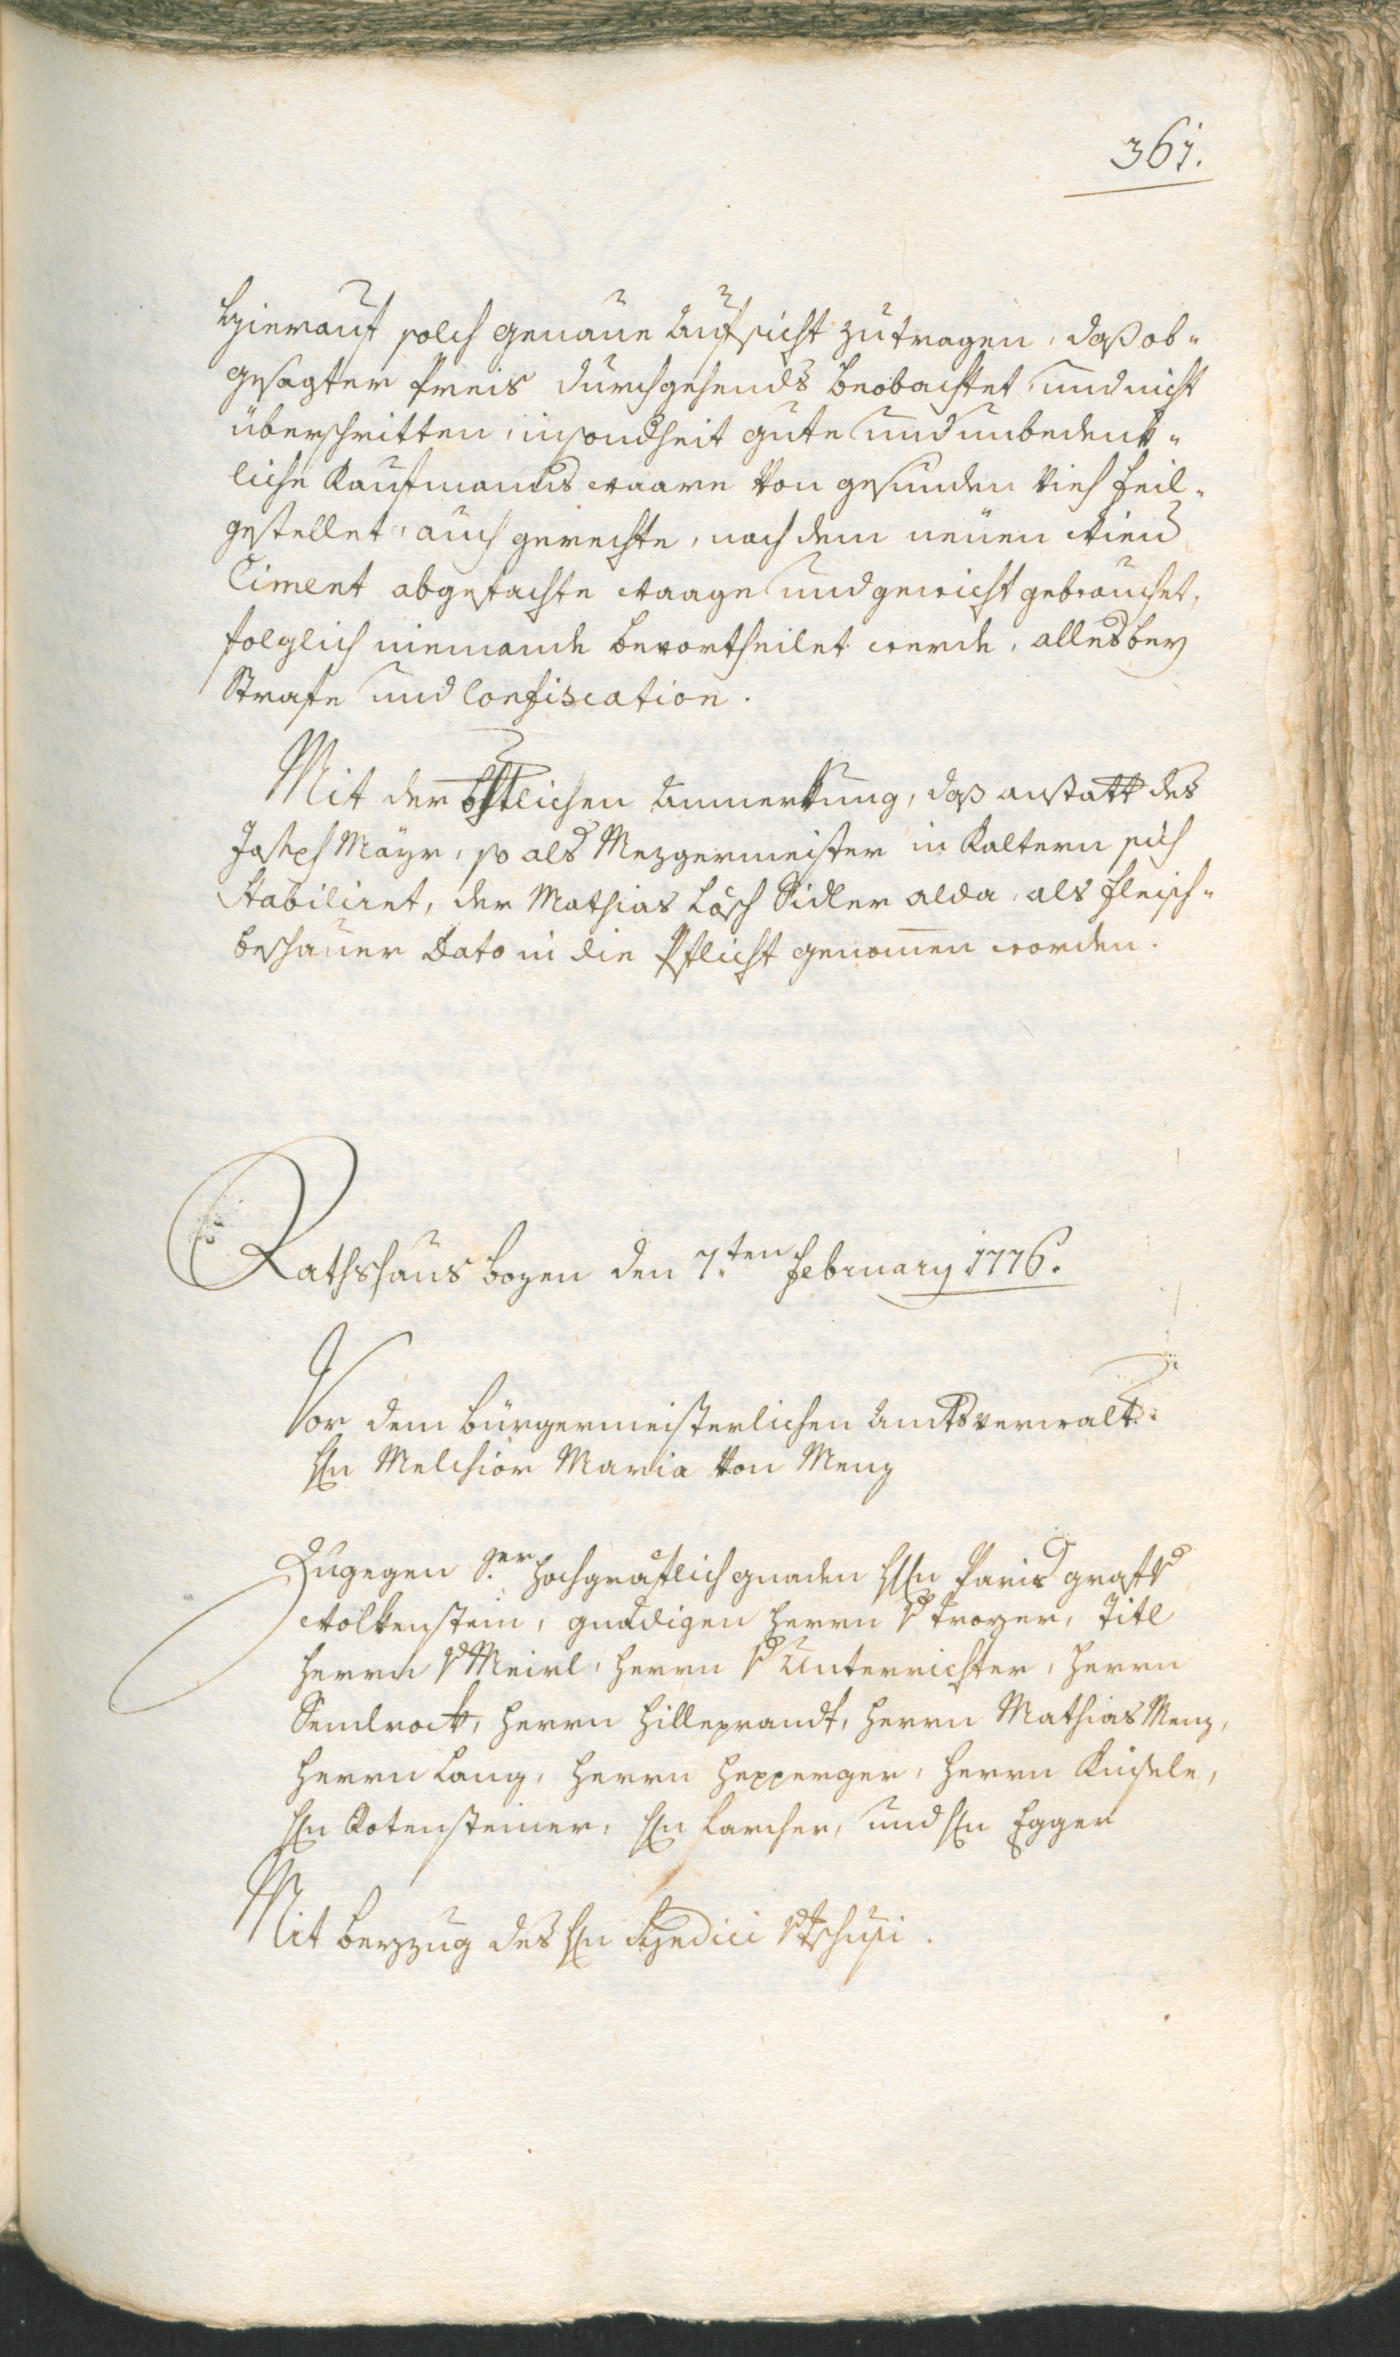 361.
hierauf solch genaue Aufsicht zutragen, daß ob-
gesagter Preis durchgehends beobachtet, und nicht
überschritten, insondheit gute und unbedenk-
liche Kaufmanns waare von gesunden Vieh feil-
gestellet, auch gerechte, nach dem neuen Wien
Ciment abgefachte Waage und gewicht gebrauchet,
folglich niemande bevortheilet werde, alles bey
Strafe und Confiscation.
Mit der Anmerkung, daß anstatt des
Joseph Mayr, so als Mezgermeister in Kaltern sich
stabiliret, der Mathias Lösch Sidler alda, als Fleisch-
beschauer Dato in die Pflicht genomen worden.
Rathshaus Bozen den 7.ten February 1776.
Vor dem Bürgermeisterlichen Amtsverwalt:
Hn Melchior Maria von Menz
Zugegen S.er Hochgräflich gnaden HHn Paris graf v
Wolkenstein, gnädigen Herrn v Troyer, Titl
Herrn v Meirl, Herrn v Unterrichter, Herrn
Semlrock, Herrn Hilleprandt, Herrn Mathias Menz,
Herrn Lang, Herrn Hepperger, Herrn Kinsele,
Hn Rotensteiner, Hn Larcher, und Hn Egger
Mit beyzug des Hn Syndici v Tschusi.